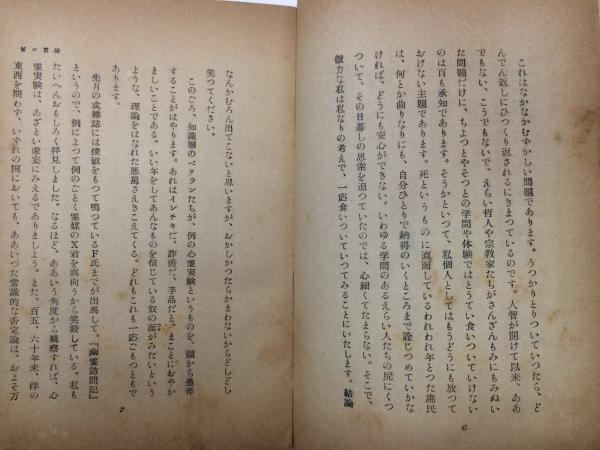 これはなかなかむずかしい問題であります。うつかりとりついていつたら、ど
んでん返しにひつくり返されるにきまつているのです。人智が開けて以来、ああ
でもない、こうでもないで、えらい哲人や宗教家たちがさんざんもみにもみぬい
た問題だけに、ちよつとやそつとの学問や体験ではとうてい食いついていけない
のは百も承知であります。そうかといつて、私個人としてはもうどうにも放つて
おけない主題であります。死というものに直面しているわれわれ年とつた庶民
は、何とか曲りなりにも、自分ひとりで納得のいくところまで詮じつめていかな
ければ、どうにも安心ができない。いわゆる学問のあるえらい人たちの尻にくつ
ついて、その日暮しの思索を追つていたのでは、心細くてたまらない。そこで、
微力な私は私なりの考えで、一応食いついていつてみることにいたします。結論
6
なんかむろん出てこないと思いますが、おかしかつたらかまわないからどしどし
笑つてください。
このごろ、知識層のベテランたちが、例の心霊実験というものを、頭から愚弄
することがはやります。あれはインチキだ、詐術だ、手品だと。まことにおやか
ましいことである。いい年をしてあんなものを信じている奴の面がみたいという
ような、理論をはなれた悪罵さえきこえてくる。どれもこれも一応ごもつともで
あります。
先月の或雑誌には俊敏をもつて鳴つているF氏までが出馬して、『幽霊訪問記』
というので、例によつて例のごとく霊媒のX君を真向うから笑殺している。私も
たいへんおもしろく拝見しました。なるほど、ああいう角度から観察すれば、心
霊実験は、あざとい虚妄にみえるでありましよう。また、百五、六十年来、洋の
東西を問わず、いずれの国においても、ああいつた常識的な否定論は、およそ万
7